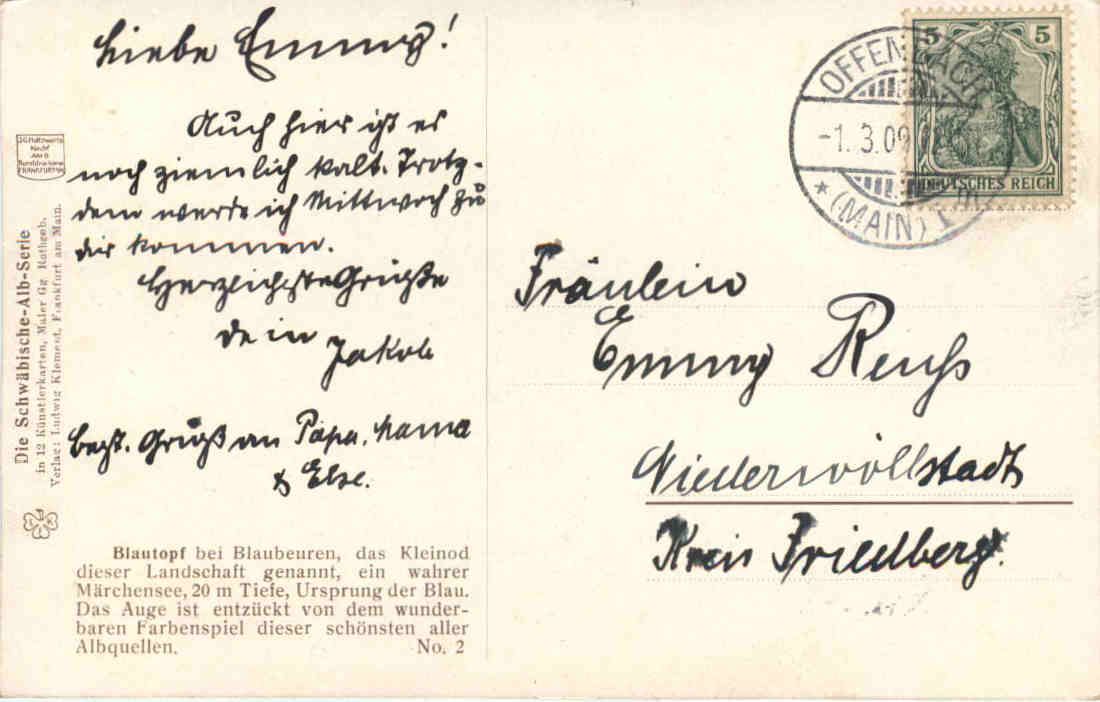 Liebe Emmy!
Auch hier ist es
noch ziemlich kalt. Trotz-
dem werde ich Mittwoch zu
dir kommen.
Herzlichste Grüße
dein
Jakob
Best. Gruß an Papa, Mama
& Else.
Blautopf bei Blaubeuren, das Kleinod
dieser Landschaft genannt, ein wahrer
Märchensee, 20 m Tiefe, Ursprung der Blau.
Das Auge ist entzückt von dem wunder-
baren Farbenspiel dieser schönsten aller
Albquellen. No. 2
Die Schwäbische-Alb-Serie
in 12 Künstlerkarten, Maler Gg. Rothgeb.
Verlag: Ludwig Klement, Frankfurt am Main.
FRANKFURT
5 5
DEUTSCHES REICH
OFFENBACH
-1. 3.09
* (MAIN) 1
Fräulein
Emmy Reuß
Niederwöllstadt
Kreis Friedberg.